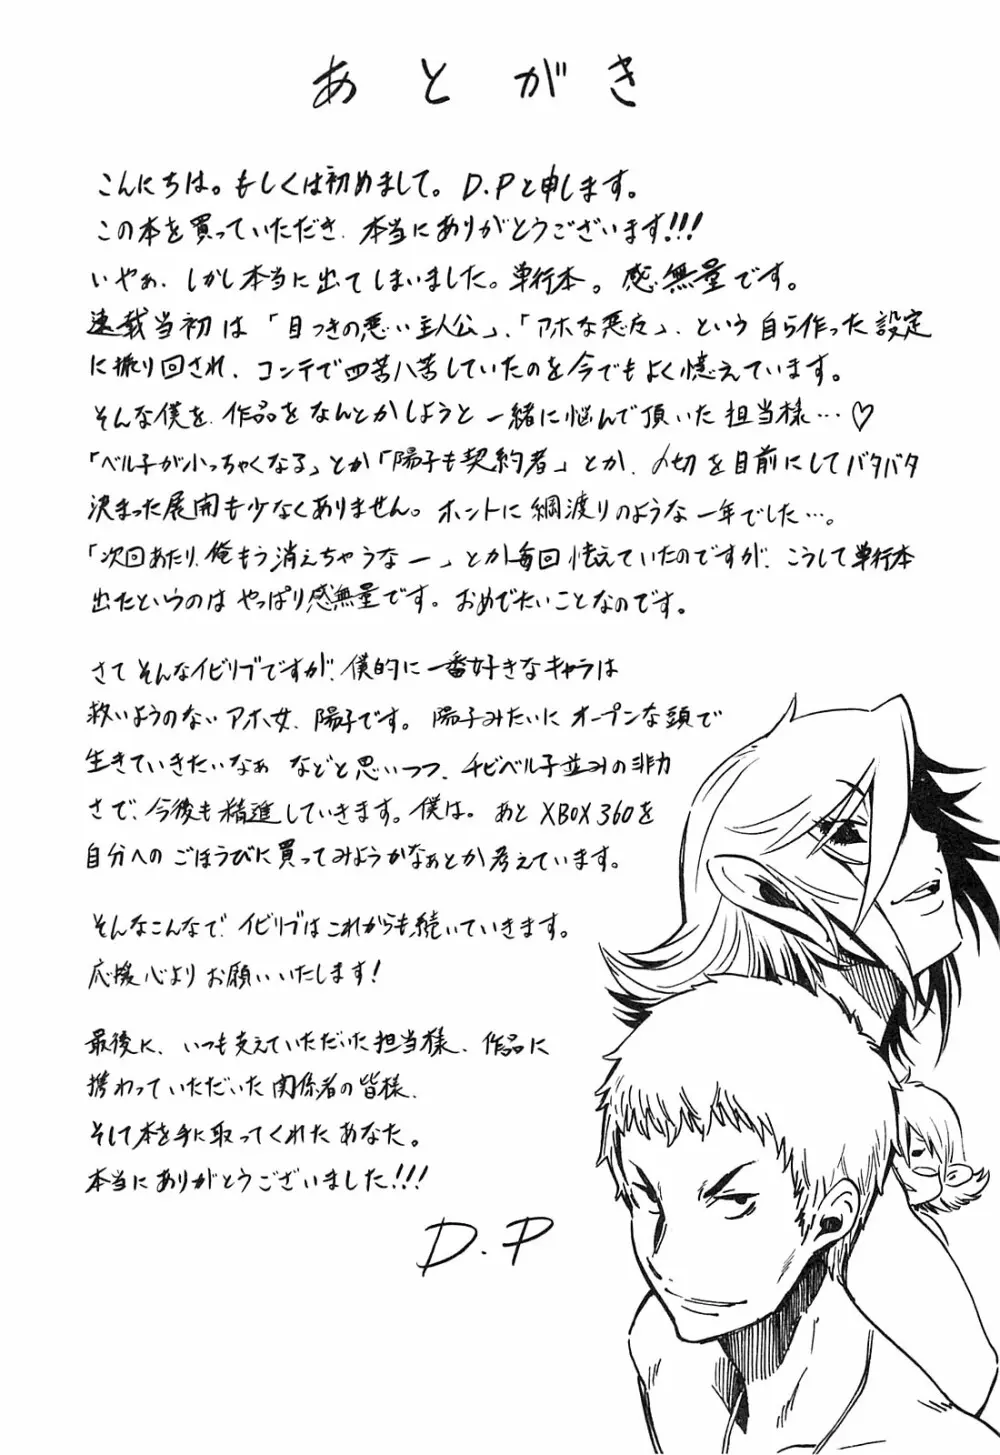 あとがき
こんにちは。もしくは初めまして。D.Pと申します。
この本を買っていただき、本当にありがとうございます!!!
いやぁ、しかし本当に出てしまいました。単行本。感無量です。
連載当初は「目つきの悪い主人公」、「アホな悪友」、という自ら作った設定
に振り回され、コンテで四苦八苦していたのを今でもよく憶えています。
そんな僕を、作品をなんとかしようと一緒に悩んで頂いた担当様…♡
「ベル子が小っちゃくなる」とか「陽子も契約者」とか、〆切を目前にしてバタバタ
決まった展開も少なくありません。ホントに綱渡りのような一年でした…。
「次回あたり、俺もう消えちゃうなー」とか毎回怯えていたのですが、こうして単行本
出たというのはやっぱり感無量です。おめでたいことなのです。
さてそんなイビリブですが、僕的に一番好きなキャラは
救いようのないアホ女、陽子です。陽子みたいにオープンな頭で
生きていきたいなぁ などと思いつつ、チビベル子並みの非力
さで、今後も精進していきます。僕は。あとXBOX360を
自分へのごほうびに買ってみようかなぁとか考えています。
そんなこんなで、イビリブはこれからも続いていきます。
応援心よりお願いいたします!
最後に、いつも支えていただいた担当様、作品に
携わっていただいた関係者の皆様、
そして本を手に取ってくれたあなた。
本当にありがとうございました!!!
D.P